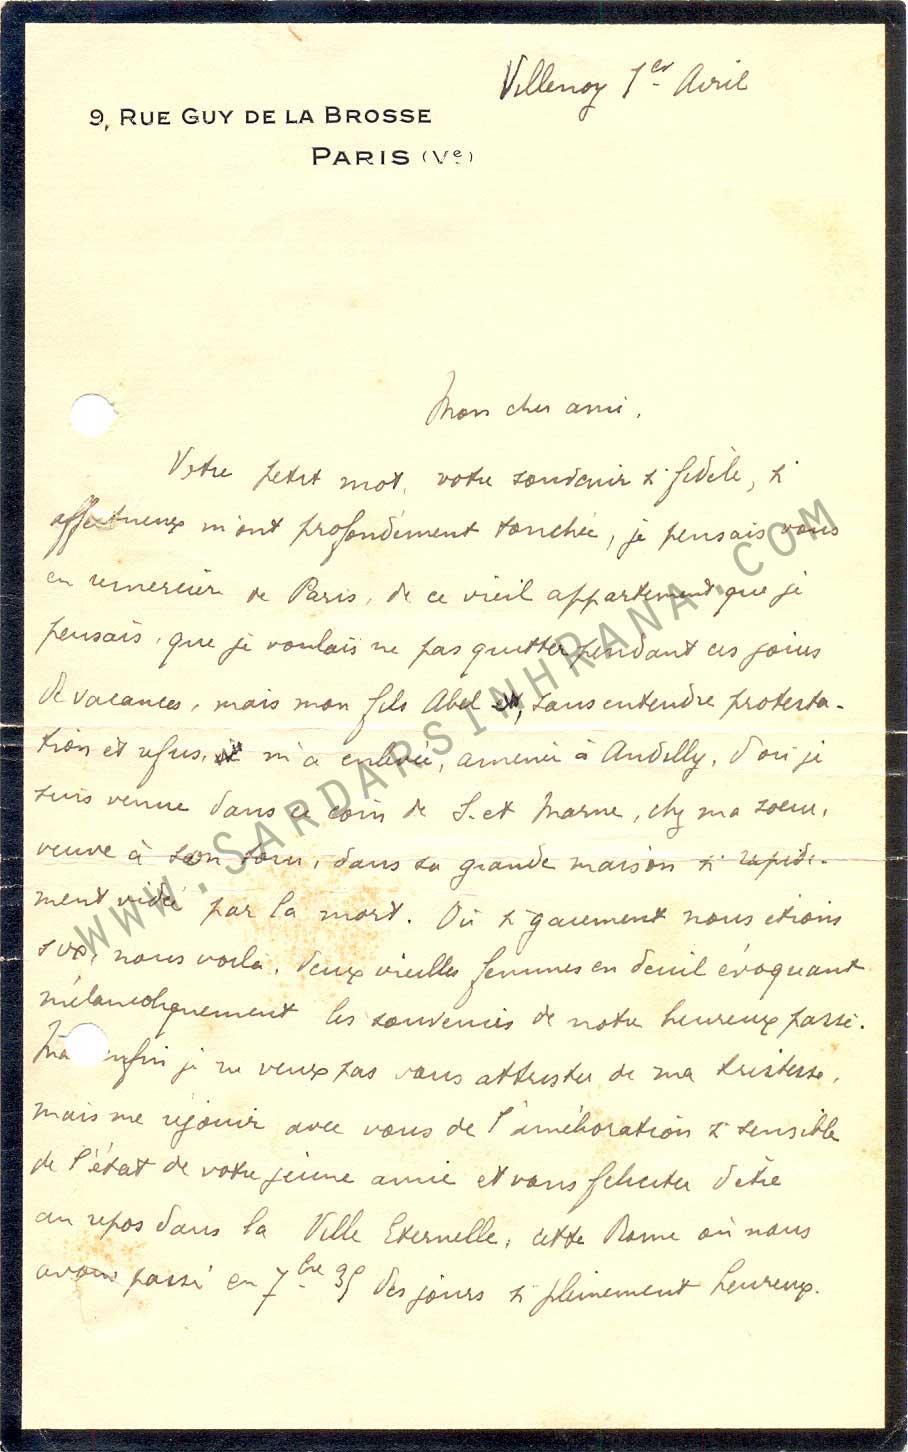 Villenoy 1er Avril
9, RUE GUY DE LA BROSSE
PARIS (Ve)
Mon cher ami.
Votre petit mot, votre souvenir si fidèle, si
affectueux m'ont profondément touchée, je pensais vous
en remercier de Paris, de ce vieil appartement que je
pensais, que je voulais ne pas quitter pendant ces jours
de vacances, mais mon fils Abel, sans entendre protesta-
tion et refus, m'a enlevée, amenée à Andilly, d'où je
suis venue dans ce coin de S. et Marne, chez ma soeur,
veuve à son tour, dans sa grande maison si rapide-
ment vidée par la mort. Où si gaiement nous étions
six, nous voilà, deux vieilles femmes en deuil évoquant
mélancoliquement les souvenirs de notre heureux passé.
Ma enfin je ne veux pas vous attrister de ma tristesse,
mais me réjouir avec vous de l'amélioration si sensible
de l'état de votre jeune amie et vous feliciter d'être
au repos dans la Ville Eternelle, cette Rome où nous
avons passé en 7bre 35 des jours si pleinement heureux.
WWW.SARDARSINHRANA.COM